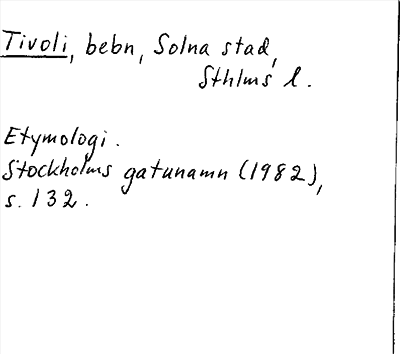 Tivoli, bebn, Solna stad,
Sthlms l.
Etymologi.
Stockholms gatunamn (1982),
s. 132.